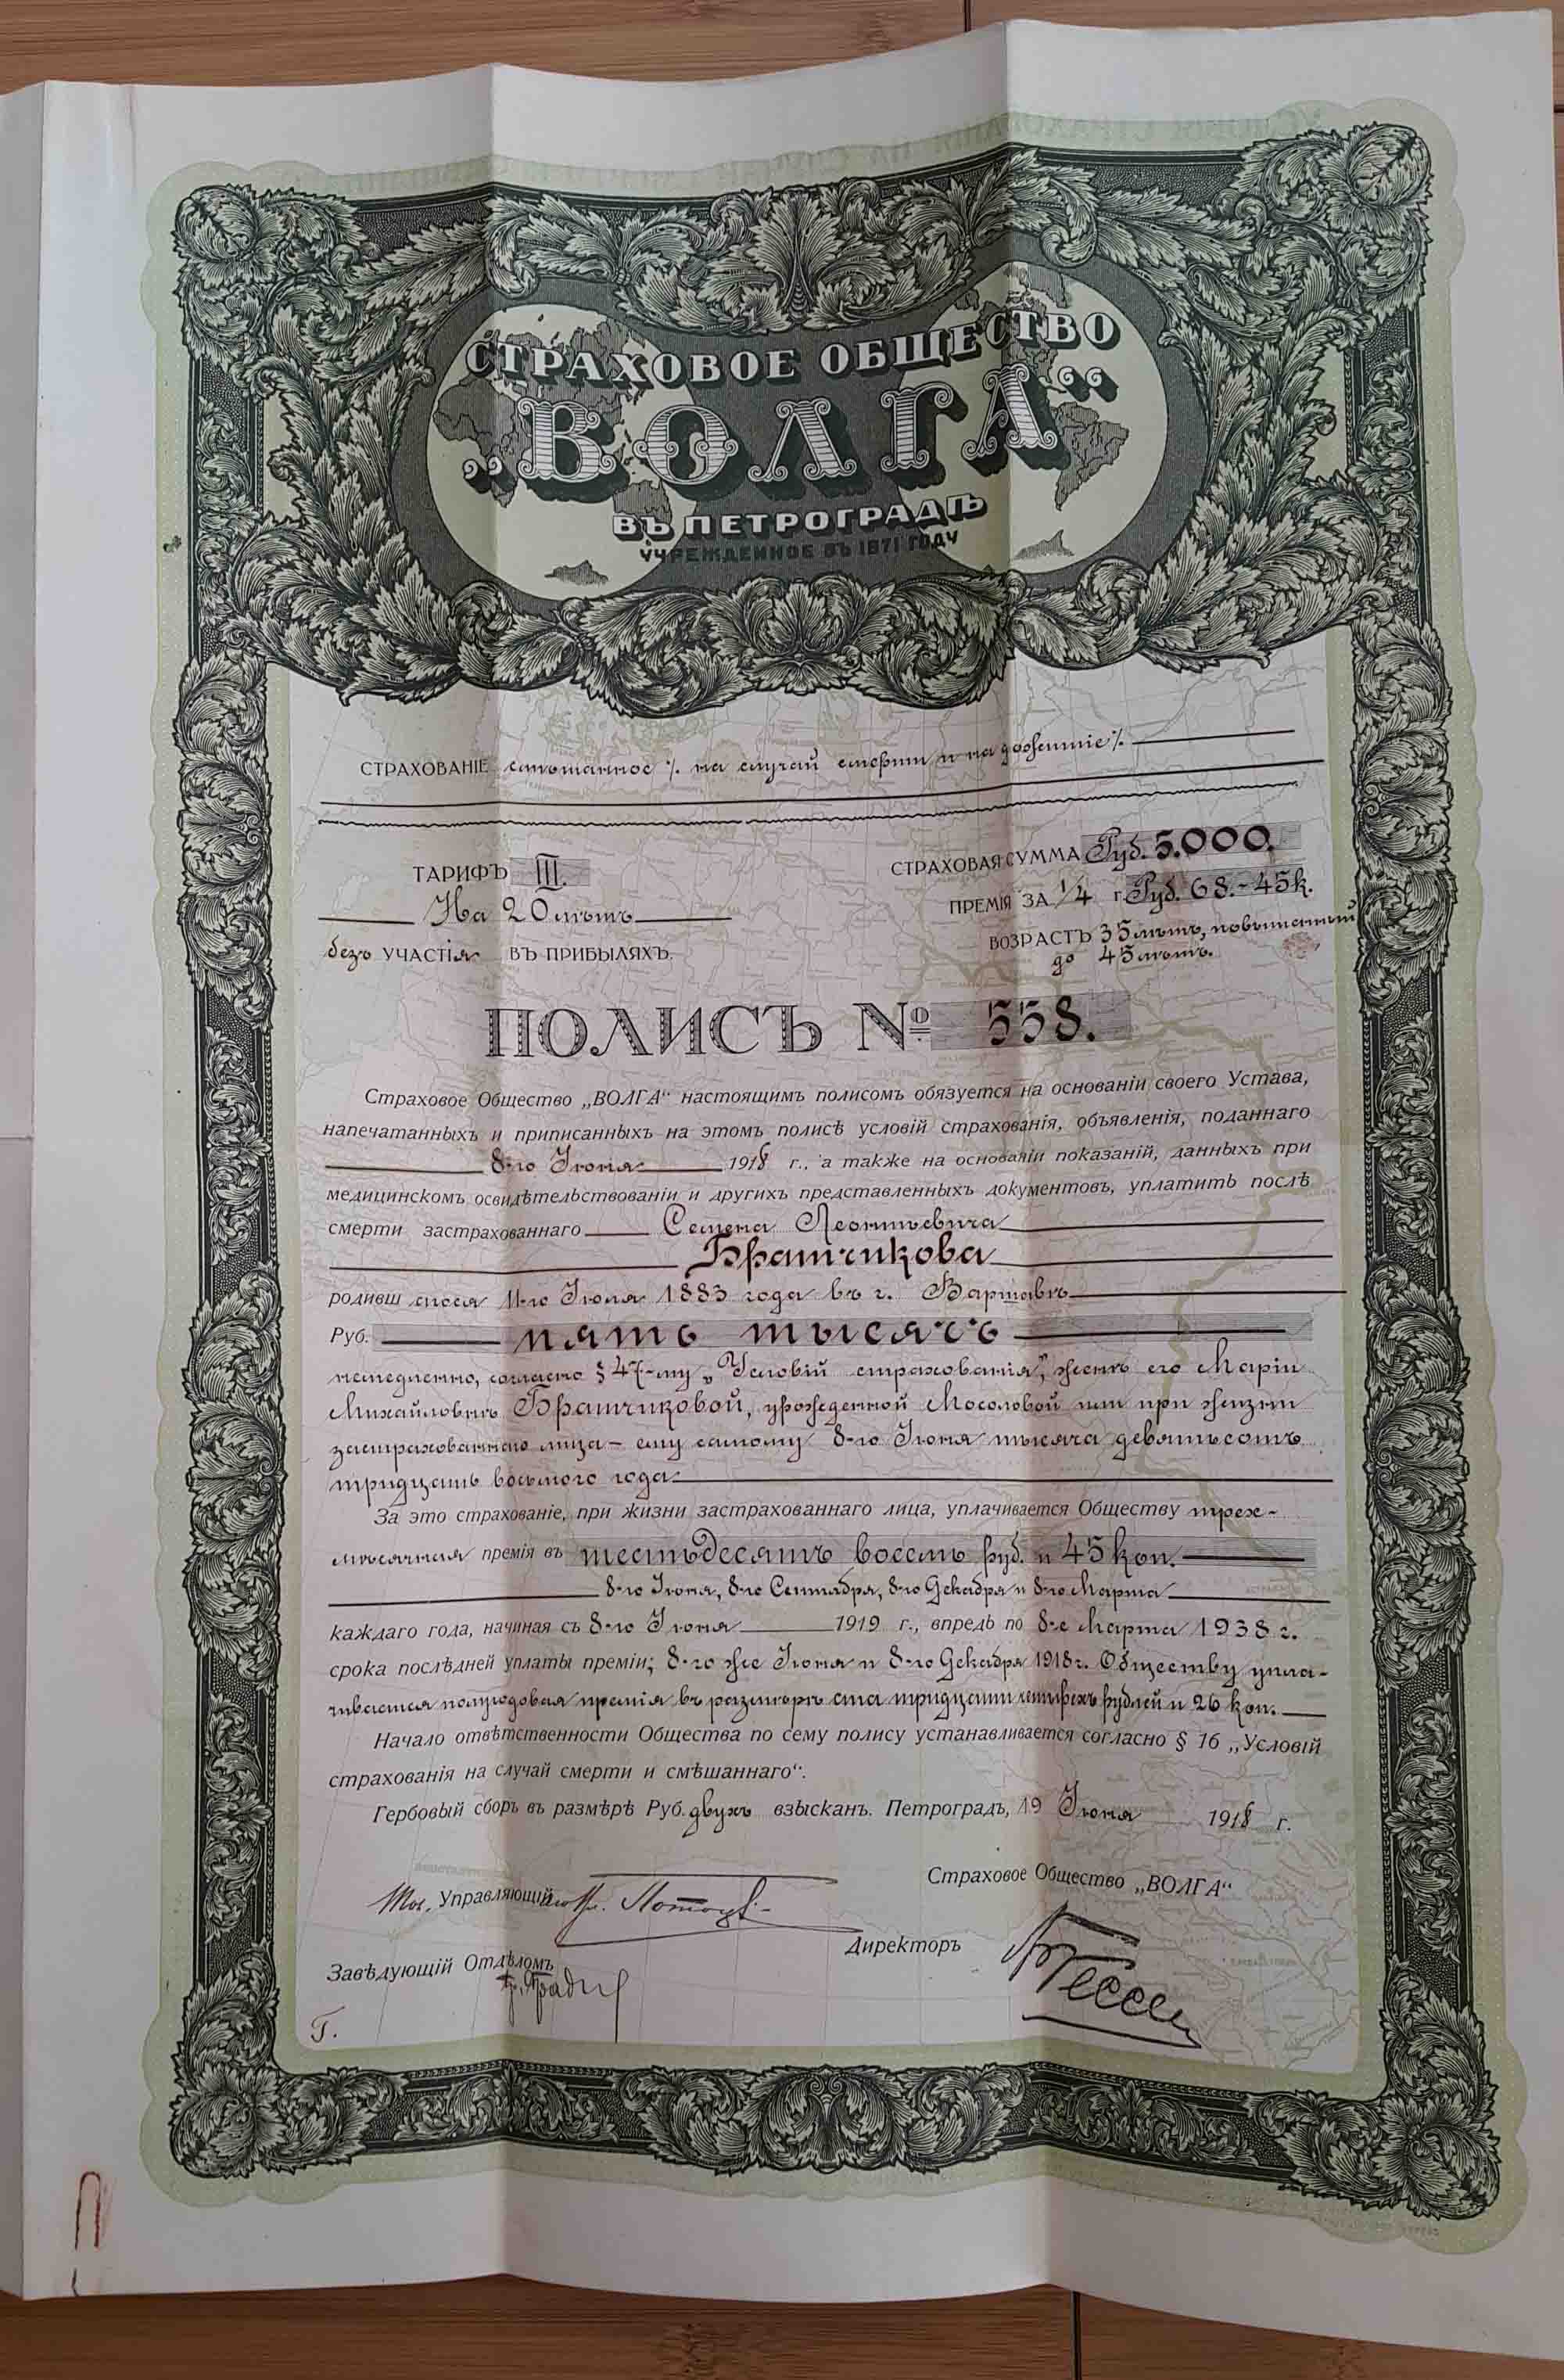 СТРАХОВОЕ ОБЩЕСТВО
„ВОЛГА“
ВЪ ПЕТРОГРАДѢ
УЧРЕЖДЕННОЕ ВЪ 1871 ГОДУ
СТРАХОВАНІЕ смѣшанное % на случай смерти и на дожитіе %
ТАРИФЪ III.
СТРАХОВАЯ СУММА Руб. 5.000.
На 20 лѣтъ
ПРЕМІЯ ЗА 1/4 г. Руб. 68.-45 к.
безъ УЧАСТІЯ ВЪ ПРИБЫЛЯХЪ.
ВОЗРАСТЪ 35 лѣтъ, повышенный
до 45 лѣтъ.
ПОЛИСЪ № 558.
Страховое Общество „ВОЛГА“ настоящимъ полисомъ обязуется на основаніи своего Устава,
напечатанныхъ и приписанныхъ на этомъ полисѣ условій страхованія, объявленія, поданнаго
8-го Іюня 1918 г., а также на основаніи показаній, данныхъ при
медицинскомъ освидѣтельствованіи и другихъ представленныхъ документовъ, уплатить послѣ
смерти застрахованнаго Семена Леонтьевича
Братчикова
родивш агося 11-го Іюля 1883 года въ г. Варшавѣ
Руб. пять тысячъ
немедленно, согласно § 47-му „Условій страхованія“, женѣ его Маріи
Михайловнѣ Братчиковой, урожденной Мосоловой или при жизни
застрахованнаго лица - ему самому 8-го Іюня тысяча девятьсотъ
тридцать восьмого года.
За это страхованіе, при жизни застрахованнаго лица, уплачивается Обществу трех-
мѣсячная премія въ шестьдесятъ восемь руб. и 45 коп.
8-го Іюня, 8-го Сентября, 8-го Декабря и 8-го Марта
каждаго года, начиная съ 8-го Іюня 1919 г., впредь по 8-е Марта 1938 г.
срока послѣдней уплаты преміи; 8-го же Іюня и 8-го Декабря 1918 г. Обществу упла-
чивается полугодовая премія въ размѣрѣ ста тридцати четырехъ рублей и 26 коп.
Начало отвѣтственности Общества по сему полису устанавливается согласно § 16 „Условій
страхованія на случай смерти и смѣшаннаго“.
Гербовый сборъ въ размѣрѣ Руб. двухъ взысканъ. Петроградъ, 19 Іюня 1918 г.
Страховое Общество „ВОЛГА“
Управляющій
Директоръ
Завѣдующій Отдѣломъ
Г.